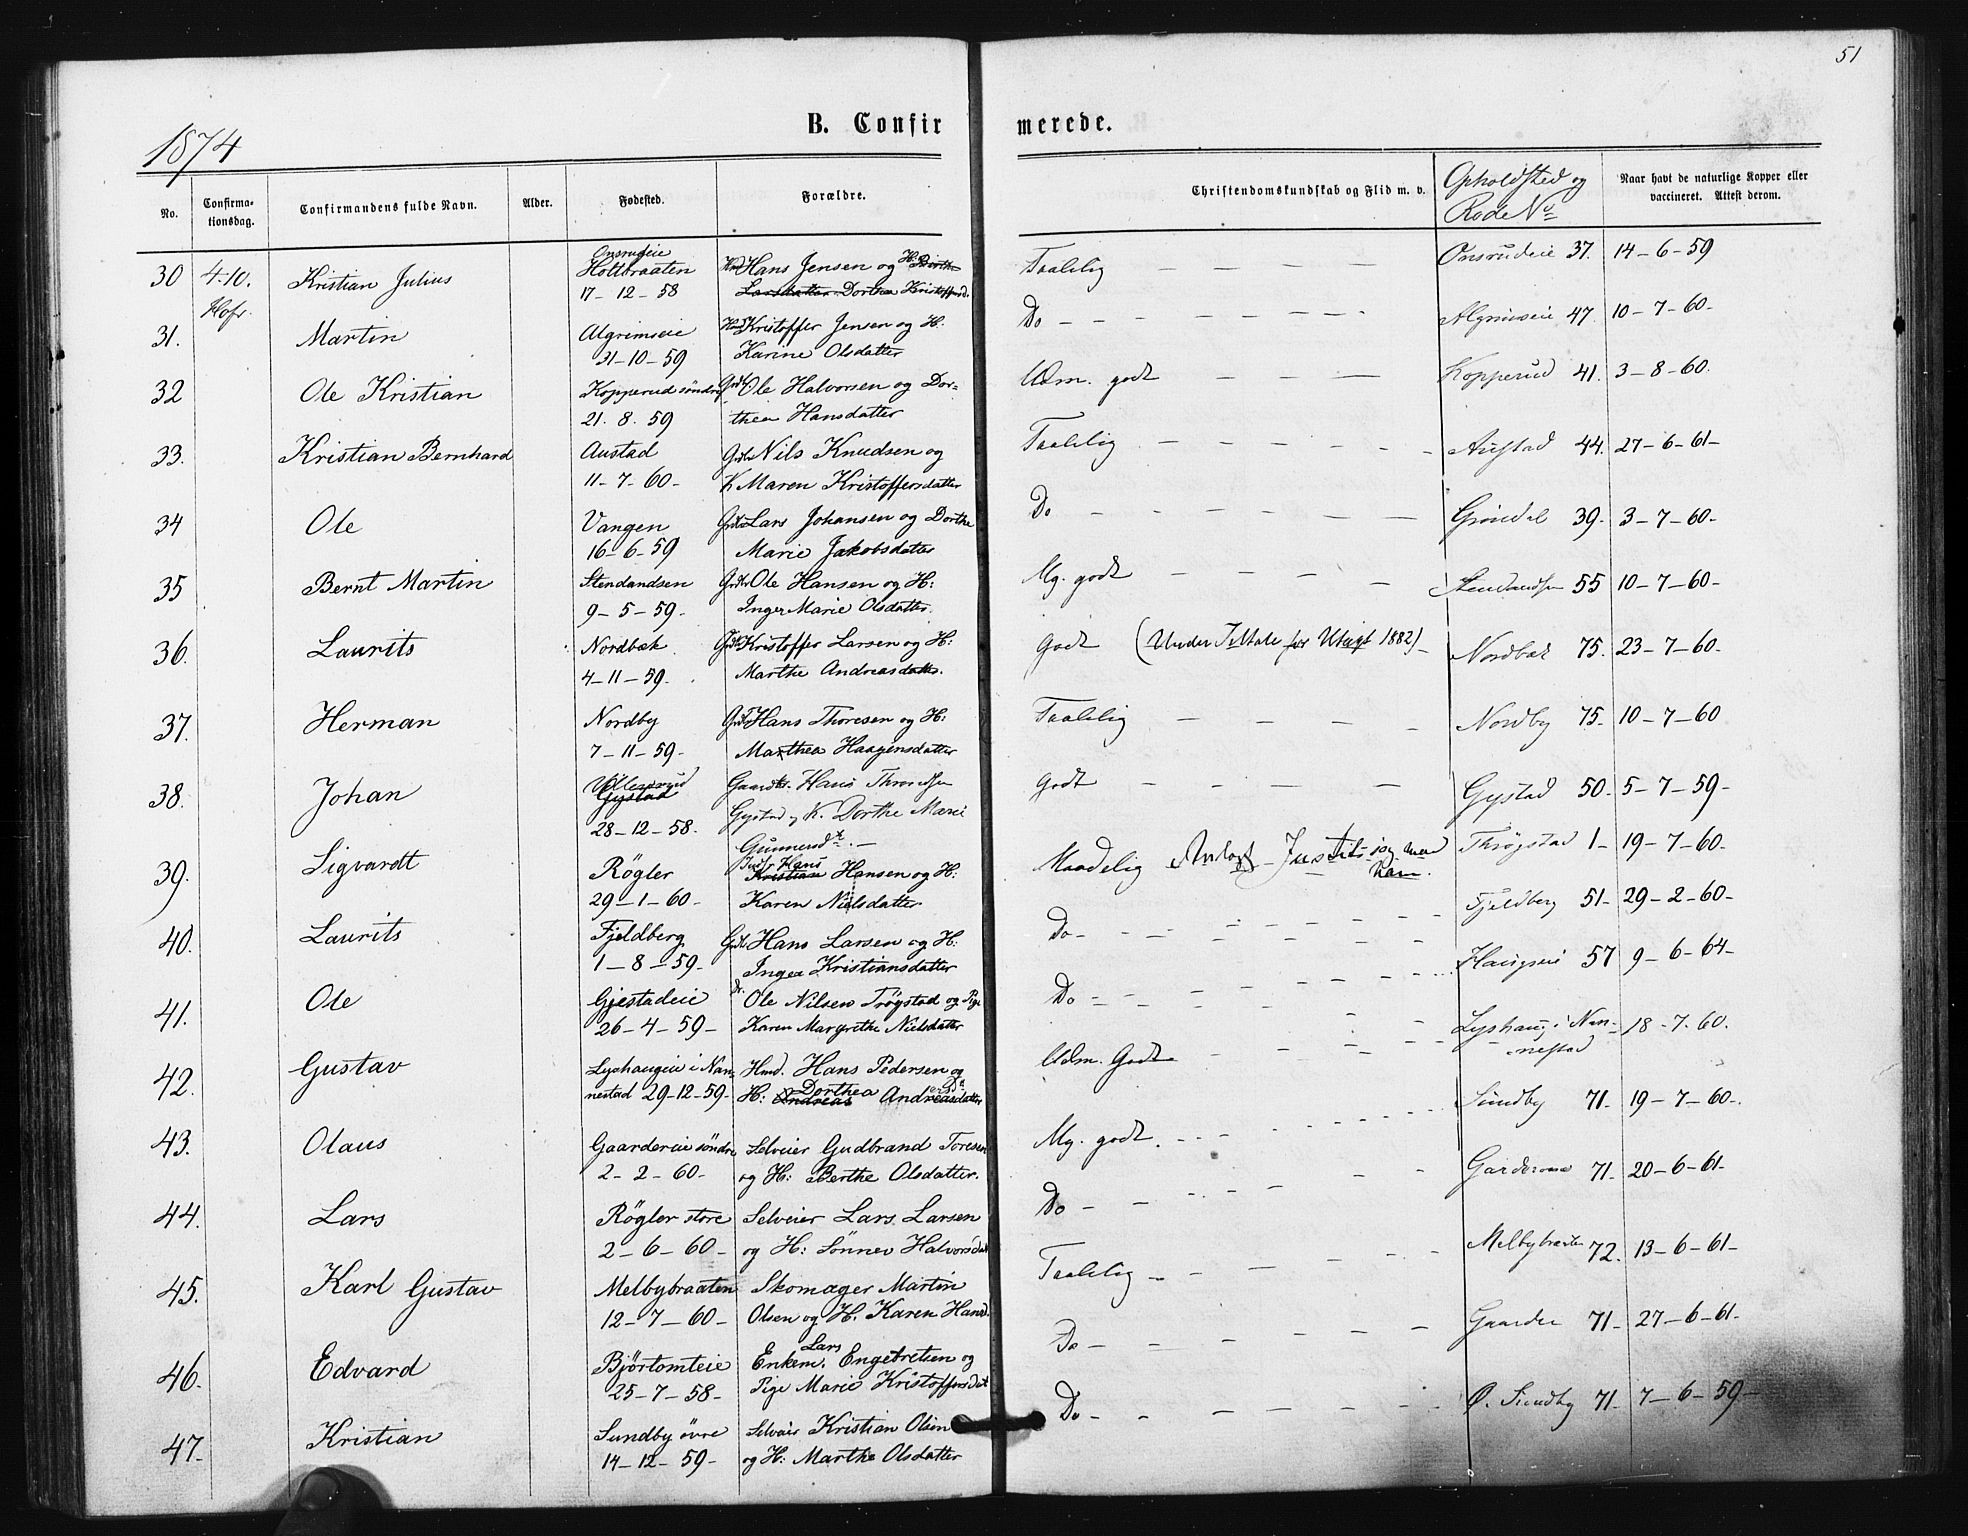 51
1874
B. Confirmerede.
No. Confirmationsdag. Confirmandens fulde Navn. Alder. Fødested. Forældre. Christendomskundskab og Flid m. v. Opholdsted og Rode No Naar havt de naturlige Kopper eller vaccineret. Attest derom.
30 4-10. Kristian Julius Onsrudeie Holtbraaten Hans Jensen og H: Taalelig Onsrudeie 37. 14-6-59
Hofr. 17-12-58 Dorthea Kristoffersd.
31. Martin Algrimseie Kristoffer Jensen og H. Do Algrimseie 47. 10-7-60-
31-10-59 Karine Olsdatter
32 Ole Kristian Kopperud søndre Ole Halvorsen og Dor= Udm. godt Kopperud 41. 3-8-60.
21. 8. 59 thea Hansdatter
33. Kristian Bernhard Austad Nils Knudsen og Taalelig Austad 44. 27-6-61-
11-7-60- K Maren Kristoffersdatter
34 Ole Vangen Lars Johansen og Dorthe Do Gröndal 39. 3-7-60-
16-6-59 Marie Jakobsdatter
35 Bernt Martin Stendandsen Ole Hansen og H: Mg. godt Stendandsen 55 10-7-60-
9-5-59. Inger Marie Olsdatter.
36. Laurits Nordbæk Kristoffer Larsen og H: Godt (Under Tiltale for Utugt 1882) Nordbæk 75. 23-7-60-
4-11-59. Marthe Andreasdatter.
37. Herman Nordby Hans Thoresen og H: Taalelig Nordby 75- 10-7-60
7-11-59- Mathea Haagensdatter
38. Johan Gystad Hans Throndsen Godt Gystad 50- 5-7-59-
28-12-58. Gystad og K. Dorthe Marie
Gunnersdtr.
39. Sigvardt Røgler Hans Kristian Hansen og H: Maadelig Thrøgstad 1- 19-7-60-
29-1-60- Karen Nielsdatter
40. Laurits Fjeldberg Hans Larsen og H: Do- Fjeldberg 51- 29-2-60-
1-8-59- Ingea Kristiansdatter
41. Ole Gjestadeie Ole Nilsen Trögstad og Pige Do Haugseie 57 9-6-64-
26-4-59- Karen Margrethe Nielsdatter
42. Gustav Lyshaugeie i Nan= Hmd. Hans Pedersen og Udm. Godt Lyshaug i Nan- 18-7-60.
nestad 29-12-59- H: Andreas Dorthea Andreasdatter nestad
43. Olaus Gaardereie söndre Selveier Gudbrand Toresen Mg. godt. Sundby 71- 19-7-60-.
2-2-60- og H: Berthe Olsdatter.
44. Lars Røgler store Selveier Lars Larsen Do 71- 20-6-61-
2-6-60- og H: Sönnev Halvorsdat
45. Karl Gustav Melbybraaten Skomager Martin Taalelig Melbybraaten 72. 13-6-61-
12-7-60- Olsen og H. Karen Hansd.
46. Edvard Bjørtomteie Enkem. Lars Engebretsen og Do Gaarder 71- 27-6-61-
25-7-58- Pige Marie Kristoffersdat
47- Kristian Sundby övre Selveier Kristian Olsen Do- Ø. Sundby 71- 7-6-59-
14-12-59- og H: Marthe Olsdatter